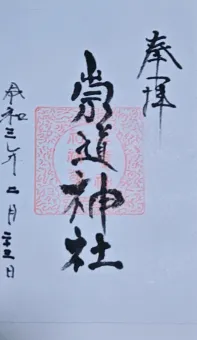 奉拝
崇道神社
令和三年二月二十三日